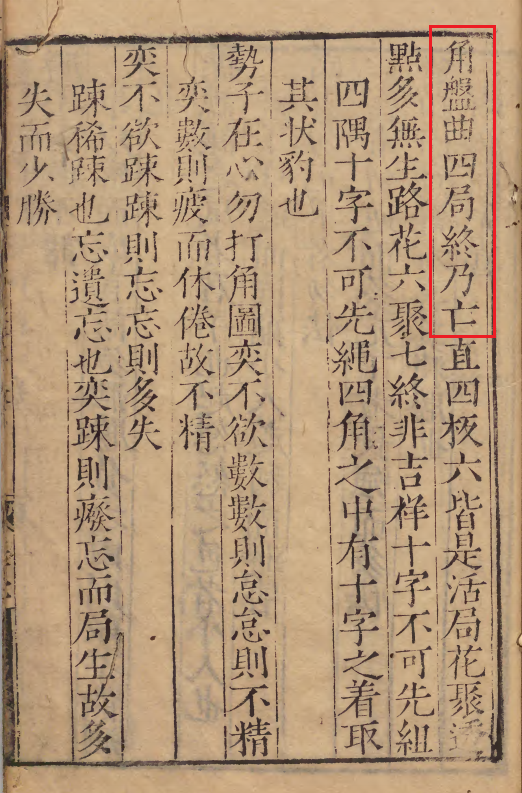 角盤曲四局終乃亡直四板六皆是活局花聚透
點多無生路花六聚七終非吉样十字不可先紐
四隅十字不可先䋲四角之中有十字之着取
其状豹也
勢子在心勿打角圖奕不欲數數則怠怠則不精
奕數則疲而休倦故不精
奕不欲踈踈則忘忘則多失
踈稀踈也忘遺忘也奕踈則癈忘而局生故多
失而少勝